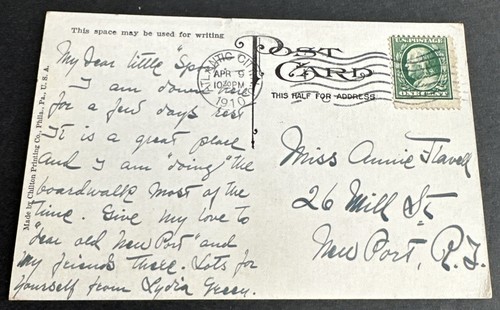 This space may be used for writing
POST CARD
THIS HALF FOR ADDRESS
ATLANTIC CITY
APR 9
1910
ONE CENT
Made by Chilton Printing Co., Phila., Pa., U. S. A.
My dear little
I am down
for a few days rest
It is a great place
and I am "doing" the
boardwalk most of the
time. Give my love to
"dear old New Port" and
my friends there. Lots for
yourself from Lydia Green.
Miss Annie Flavell
26 Mill St
New Port, R.I.